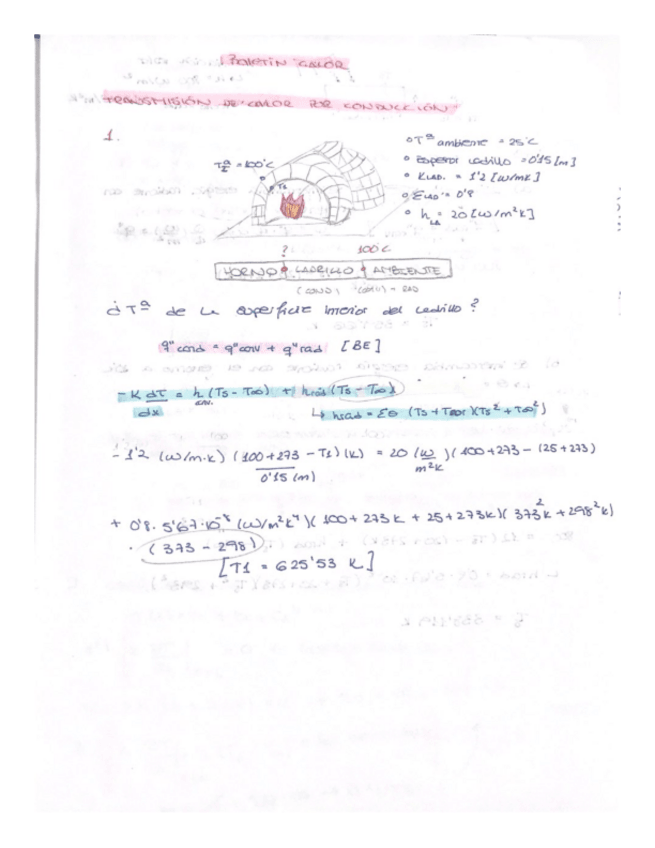 BOLETÍN CALOR
TRANSMISIÓN DE CALOR POR CONDUCCIÓN
1.
T2ª = 100ºC
Ts
o Tª ambiente = 25ºC
o Espesor ladrillo = 0'15 [m]
o KLAD. = 1'2 [W/mK]
o ELAD = 0'8
o h = 20 [W/m²K]
? 100ºC
HORNO LADRILLO AMBIENTE
(COND) (CONV) - RAD
¿Tª de la superficie interior del ladrillo?
q" cond = q" conv + q" rad [BE]
- K dT/dx = h (Ts - T∞) + hrad (Ts - T∞)
↳ hrad = εσ (Ts + T∞)(Ts² + T∞²)
- 1'2 (W/m·K) (100 + 273 - T1)(K) / 0'15 (m) = 20 (W/m²K) (100 + 273 - (25 + 273)
+ 0'8 · 5'67·10⁻⁸ (W/m²K⁴)(100 + 273K + 25 + 273K)(373²K + 298²K)
· (373 - 298)
[T1 = 625'53 K]